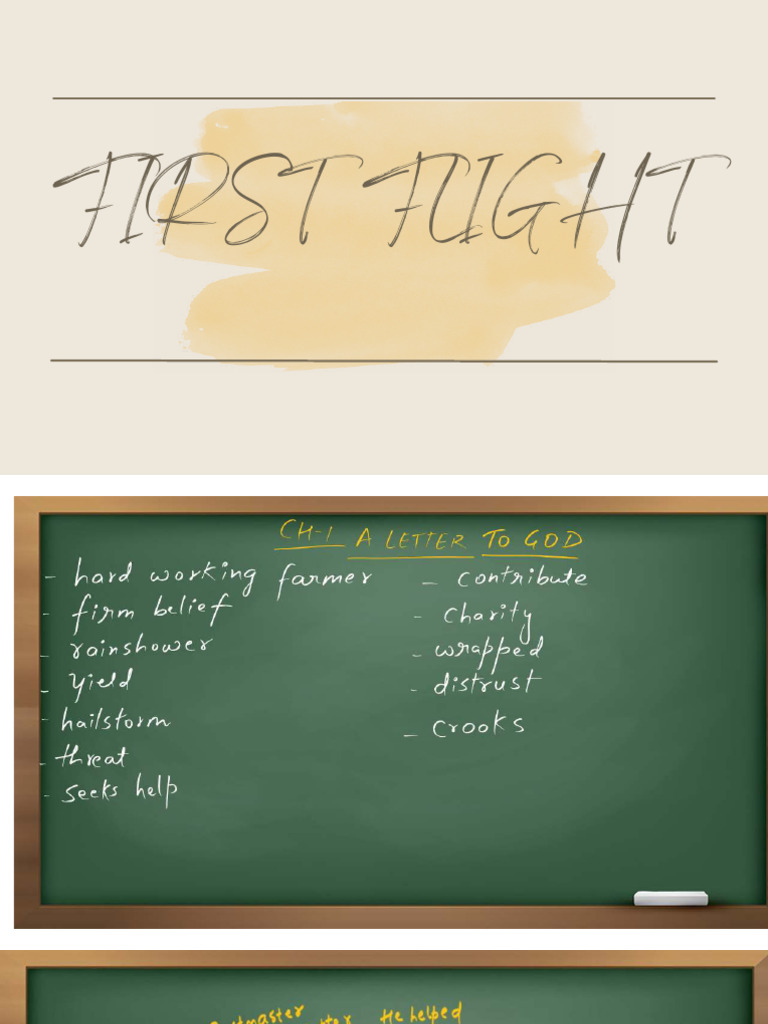 FIRST FLIGHT
CH-1 A LETTER TO GOD
- hard working farmer
- firm belief
- rainshower
- yield
- hailstorm
- threat
- seeks help
- contribute
- charity
- wrapped
- distrust
- crooks
He helped